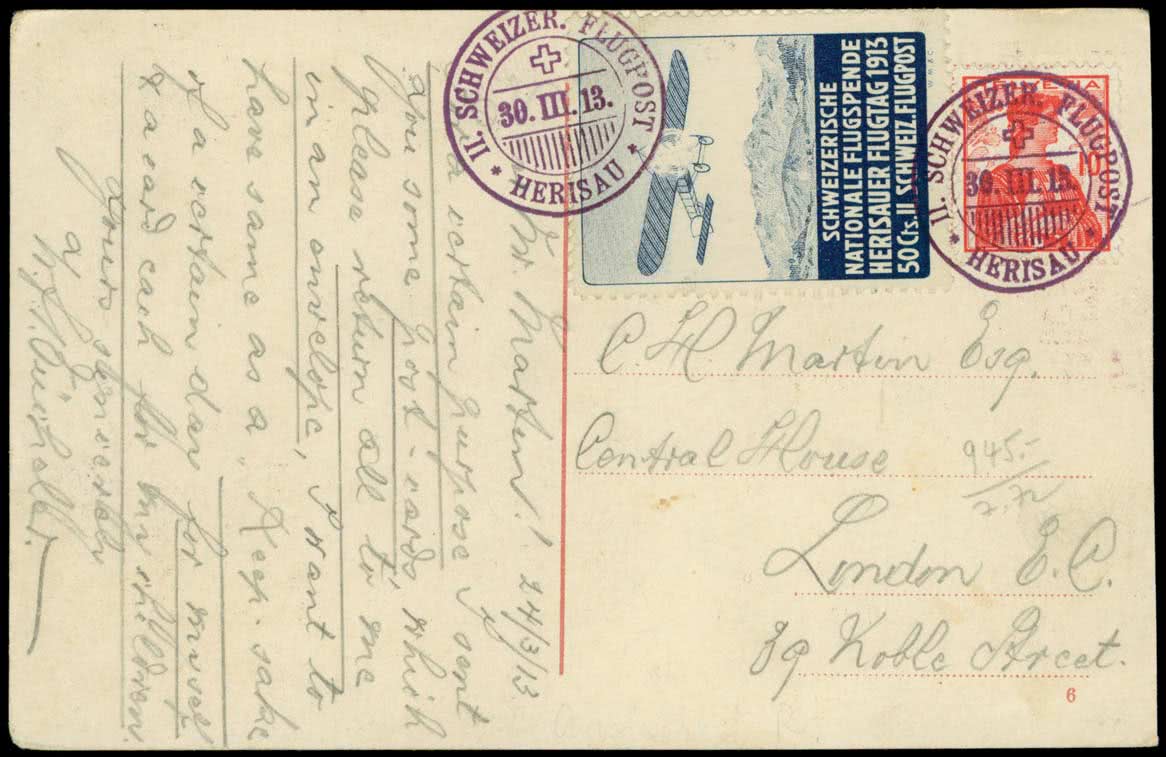 II. SCHWEIZER. FLUGPOST
30. III. 13.
* HERISAU *
SCHWEIZERISCHE
NATIONALE FLUGSPENDE
HERISAUER FLUGTAG 1913
50 Cts. II. SCHWEIZ. FLUGPOST
II. SCHWEIZER. FLUGPOST
30. III. 13.
* HERISAU *
10
C H Martin Esq.
Central House
945.-
London E. C.
39 Noble Street.
6
Mr. Martin! 24/3/13
certain purpose I sent
you some post-cards which
please return all to me
in an onvelope, I want to
have same as a "Keep-sake
of a certain day for myself
& a card each for my childdren.
Yours sincerely